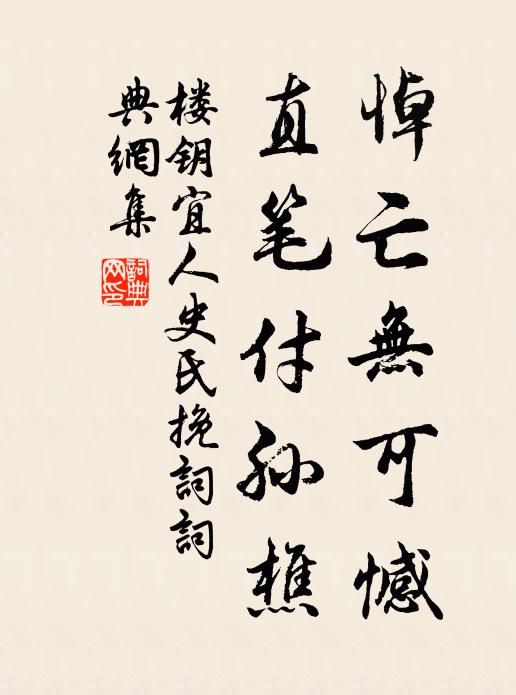 悼亡無可憾
直笔付孙樵
楼钥宜人史氏挽詞詞
典網集
詞典
网印